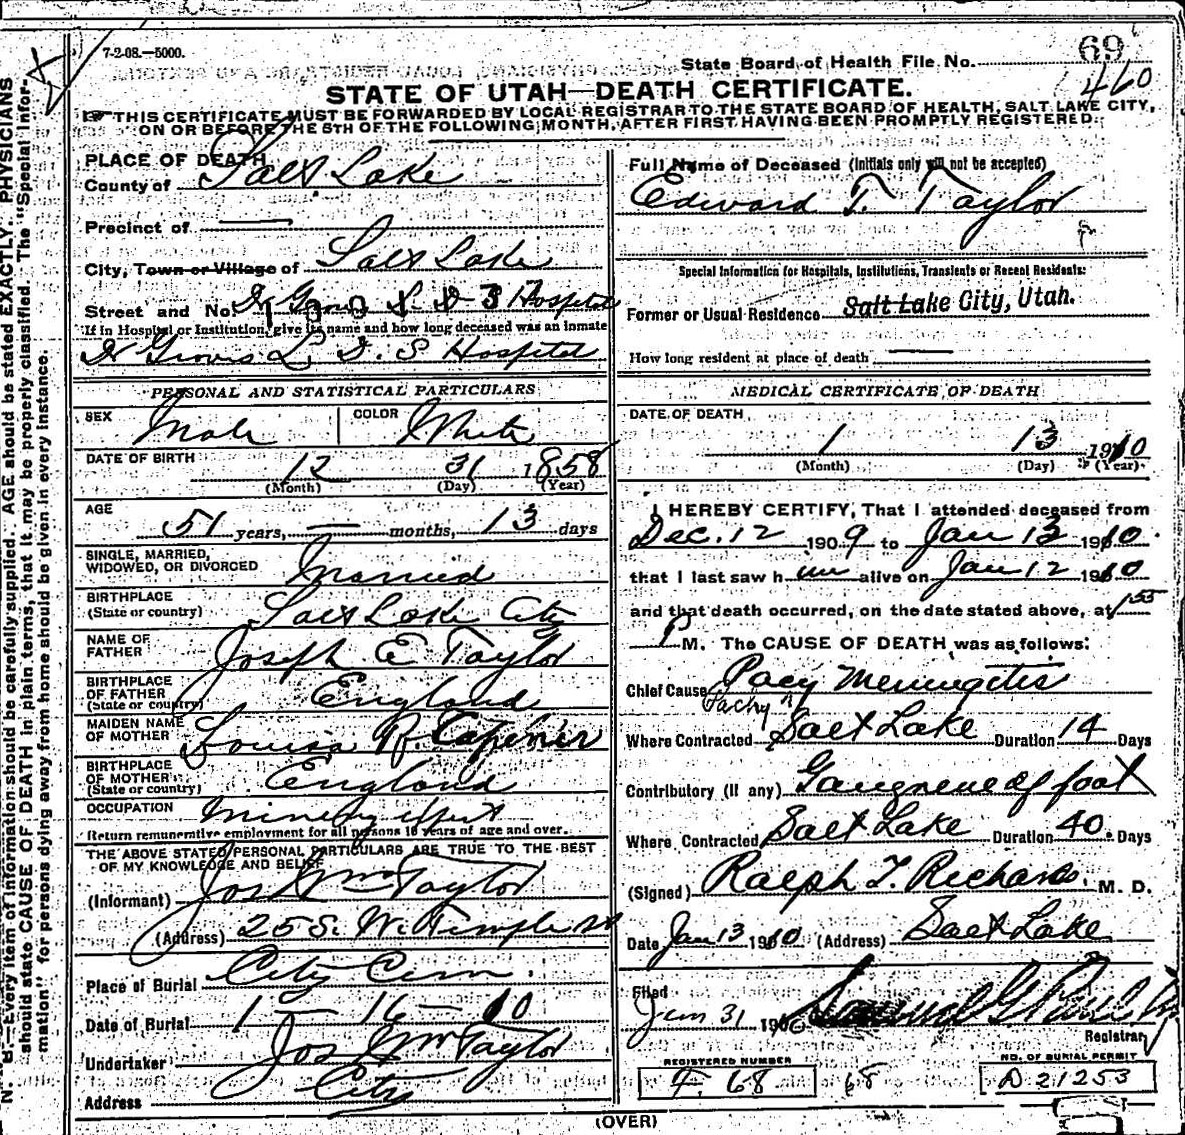 7-2-08.—5000.
69
State Board of Health File No.
460
STATE OF UTAH—DEATH CERTIFICATE.
THIS CERTIFICATE MUST BE FORWARDED BY LOCAL REGISTRAR TO THE STATE BOARD OF HEALTH, SALT LAKE CITY,
ON OR BEFORE THE 5TH OF THE FOLLOWING MONTH, AFTER FIRST HAVING BEEN PROMPTLY REGISTERED.
PLACE OF DEATH
County of Salt Lake
Precinct of —
City, Town or Village of Salt Lake
Street and No. Dr Groves L. D. S Hospital
If in Hospital or Institution, give its name and how long deceased was an inmate
Dr Groves L. D. S Hospital
PERSONAL AND STATISTICAL PARTICULARS
SEX Male COLOR White
DATE OF BIRTH 12 31 1858
(Month) (Day) (Year)
AGE
51 years, — months, 13 days
SINGLE, MARRIED,
WIDOWED, OR DIVORCED Married
BIRTHPLACE
(State or country) Salt Lake City
NAME OF
FATHER Joseph E Taylor
BIRTHPLACE
OF FATHER
(State or country) England
MAIDEN NAME
OF MOTHER Louisa R. Capener
BIRTHPLACE
OF MOTHER
(State or country) England
OCCUPATION Mining Expert
Return remunerative employment for all persons 10 years of age and over.
THE ABOVE STATED PERSONAL PARTICULARS ARE TRUE TO THE BEST
OF MY KNOWLEDGE AND BELIEF
(Informant) Jos Wm Taylor
(Address) 25 S. W. Temple st
Place of Burial City Cem.
Date of Burial 1 — 16 — 10
Undertaker Jos Wm Taylor
Address City
Full Name of Deceased (Initials only will not be accepted)
Edward T. Taylor
Special Information for Hospitals, Institutions, Transients or Recent Residents:
Former or Usual Residence Salt Lake City, Utah.
How long resident at place of death —
MEDICAL CERTIFICATE OF DEATH
DATE OF DEATH
1 13 1910
(Month) (Day) (Year)
I HEREBY CERTIFY, That I attended deceased from
Dec. 12 1909 to Jan 13 1910.
that I last saw h im alive on Jan 12 1910
and that death occurred, on the date stated above, at 1 55
P M. The CAUSE OF DEATH was as follows:
Chief Cause Pacy Meningitis
Pachy
Where Contracted Salt Lake Duration 14 Days
Contributory (if any) Gangrene of foot
Where Contracted Salt Lake Duration 40. Days
(Signed) Ralph T. Richards. M. D.
Date Jan 13 1910 (Address) Salt Lake
Filed
Jan 31 190
Registrar
REGISTERED NUMBER
F. 68
68
NO. OF BURIAL PERMIT
D 21253
(OVER)
N. B.—Every item of information should be carefully supplied. AGE should be stated EXACTLY. PHYSICIANS
should state CAUSE OF DEATH in plain terms, that it may be properly classified. The "Special Infor-
mation" for persons dying away from home should be given in every instance.